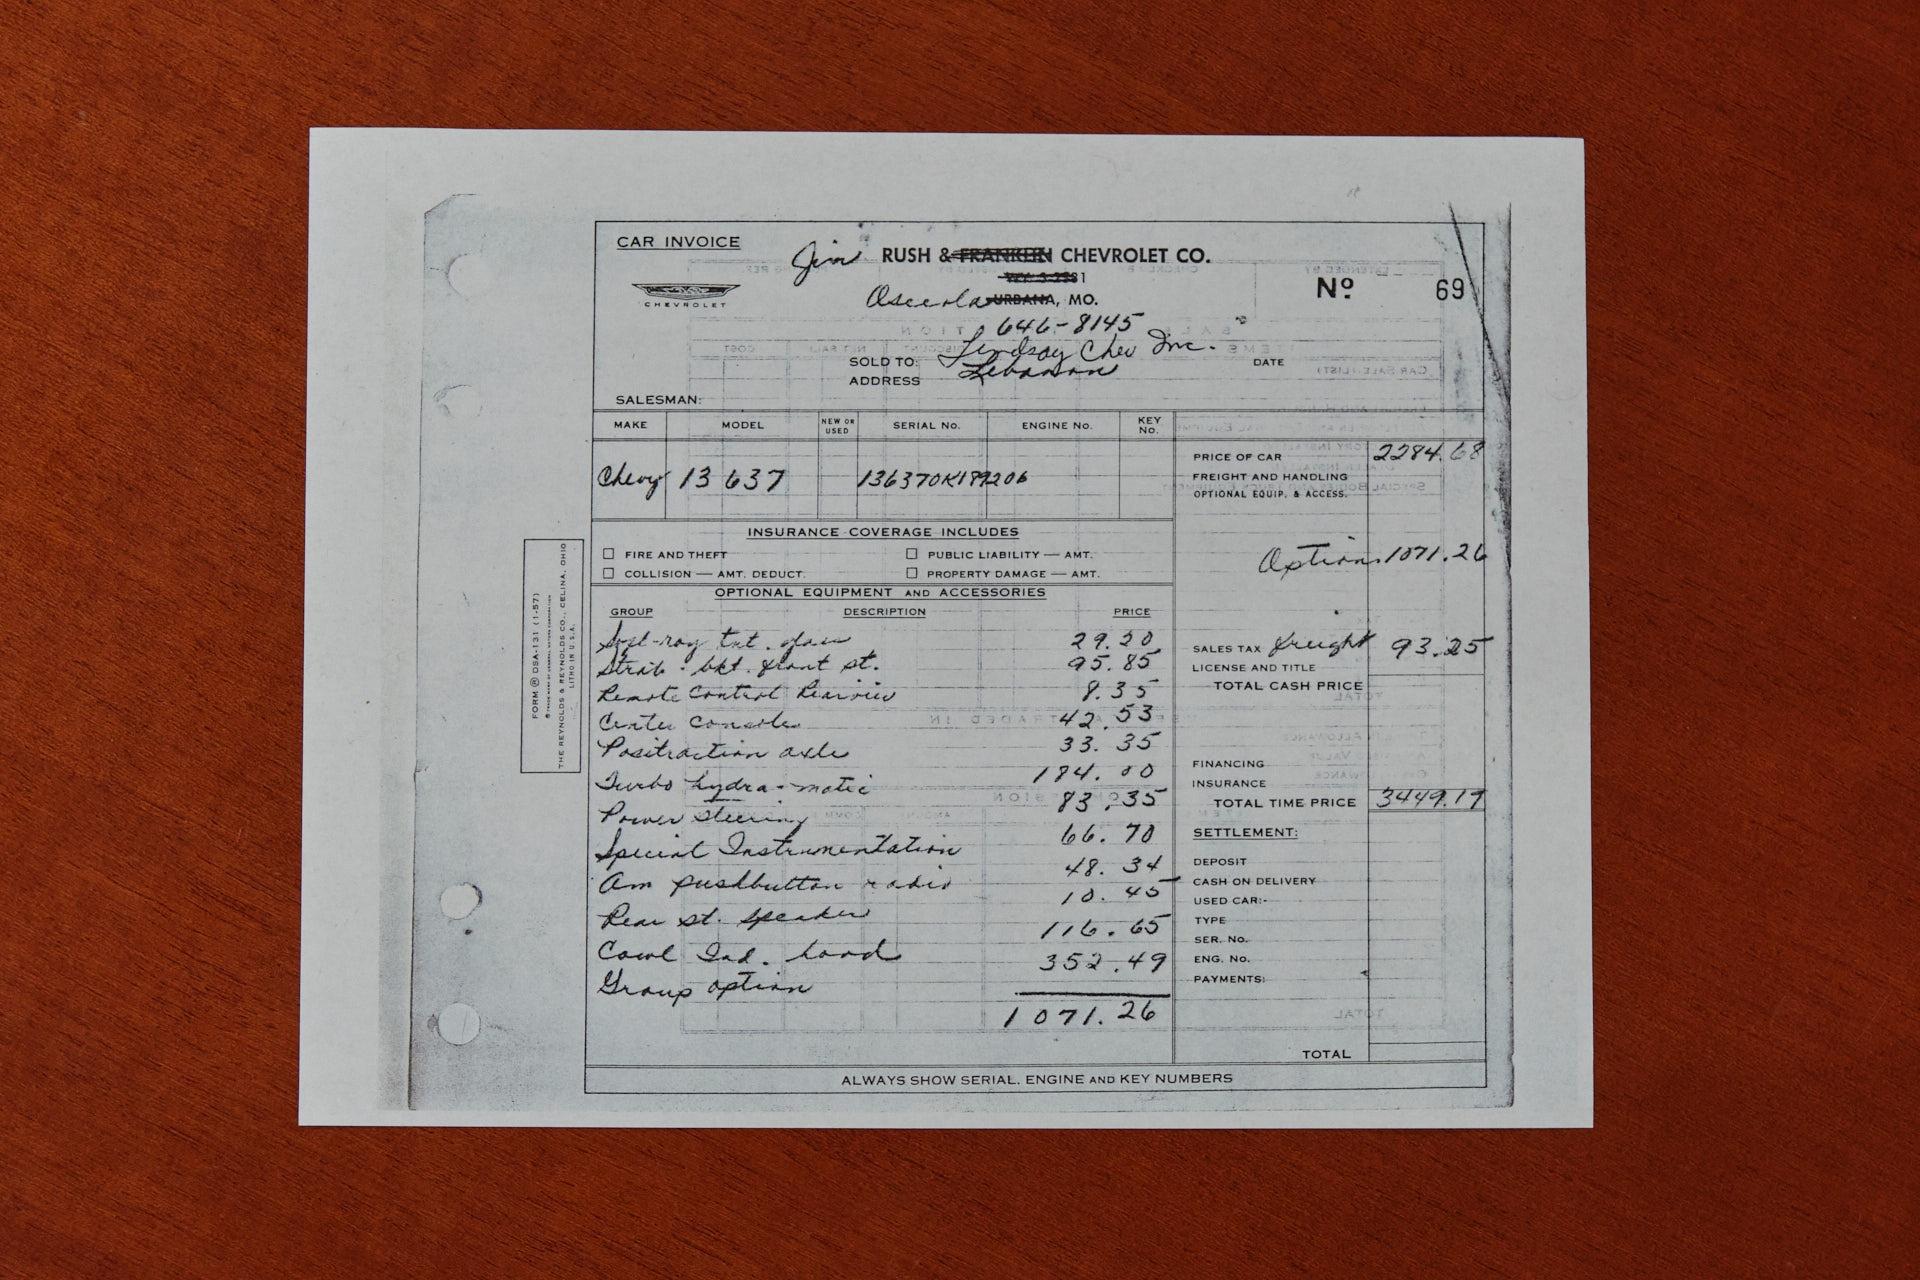 CAR INVOICE
Jim RUSH & FRANKLIN CHEVROLET CO.
CHEVROLET
Osceola URBANA, MO.
Nº 69
646-8145
SOLD TO: Lindsay Chev Inc.
DATE
ADDRESS Lebanon
SALESMAN:
MAKE MODEL NEW OR USED SERIAL No. ENGINE No. KEY No.
Chevy 13637 136370K179206
PRICE OF CAR 2284.68
FREIGHT AND HANDLING
OPTIONAL EQUIP. & ACCESS.
Options 1071.26
SALES TAX freight 93.25
LICENSE AND TITLE
TOTAL CASH PRICE
FINANCING
INSURANCE
TOTAL TIME PRICE 3449.19
SETTLEMENT:
DEPOSIT
CASH ON DELIVERY
USED CAR:-
TYPE
SER. No.
ENG. No.
PAYMENTS:
TOTAL
INSURANCE COVERAGE INCLUDES
FIRE AND THEFT PUBLIC LIABILITY — AMT.
COLLISION — AMT. DEDUCT. PROPERTY DAMAGE — AMT.
OPTIONAL EQUIPMENT AND ACCESSORIES
GROUP DESCRIPTION PRICE
Soft-ray tnt. glass 29.20
Strato-bkt. front st. 95.85
Remote Control Rearview 8.35
Center console 42.53
Positraction axle 33.35
Turbo hydra-matic 184.00
Power Steering 83.35
Special Instrumentation 66.70
Am pushbutton radio 48.34
Rear st. speaker 10.45
Cowl Ind. hood 116.65
Group option 352.49
1071.26
ALWAYS SHOW SERIAL, ENGINE AND KEY NUMBERS
FORM ® DSA-131 (1-57)
THE REYNOLDS & REYNOLDS CO., CELINA, OHIO
LITHO IN U.S.A.